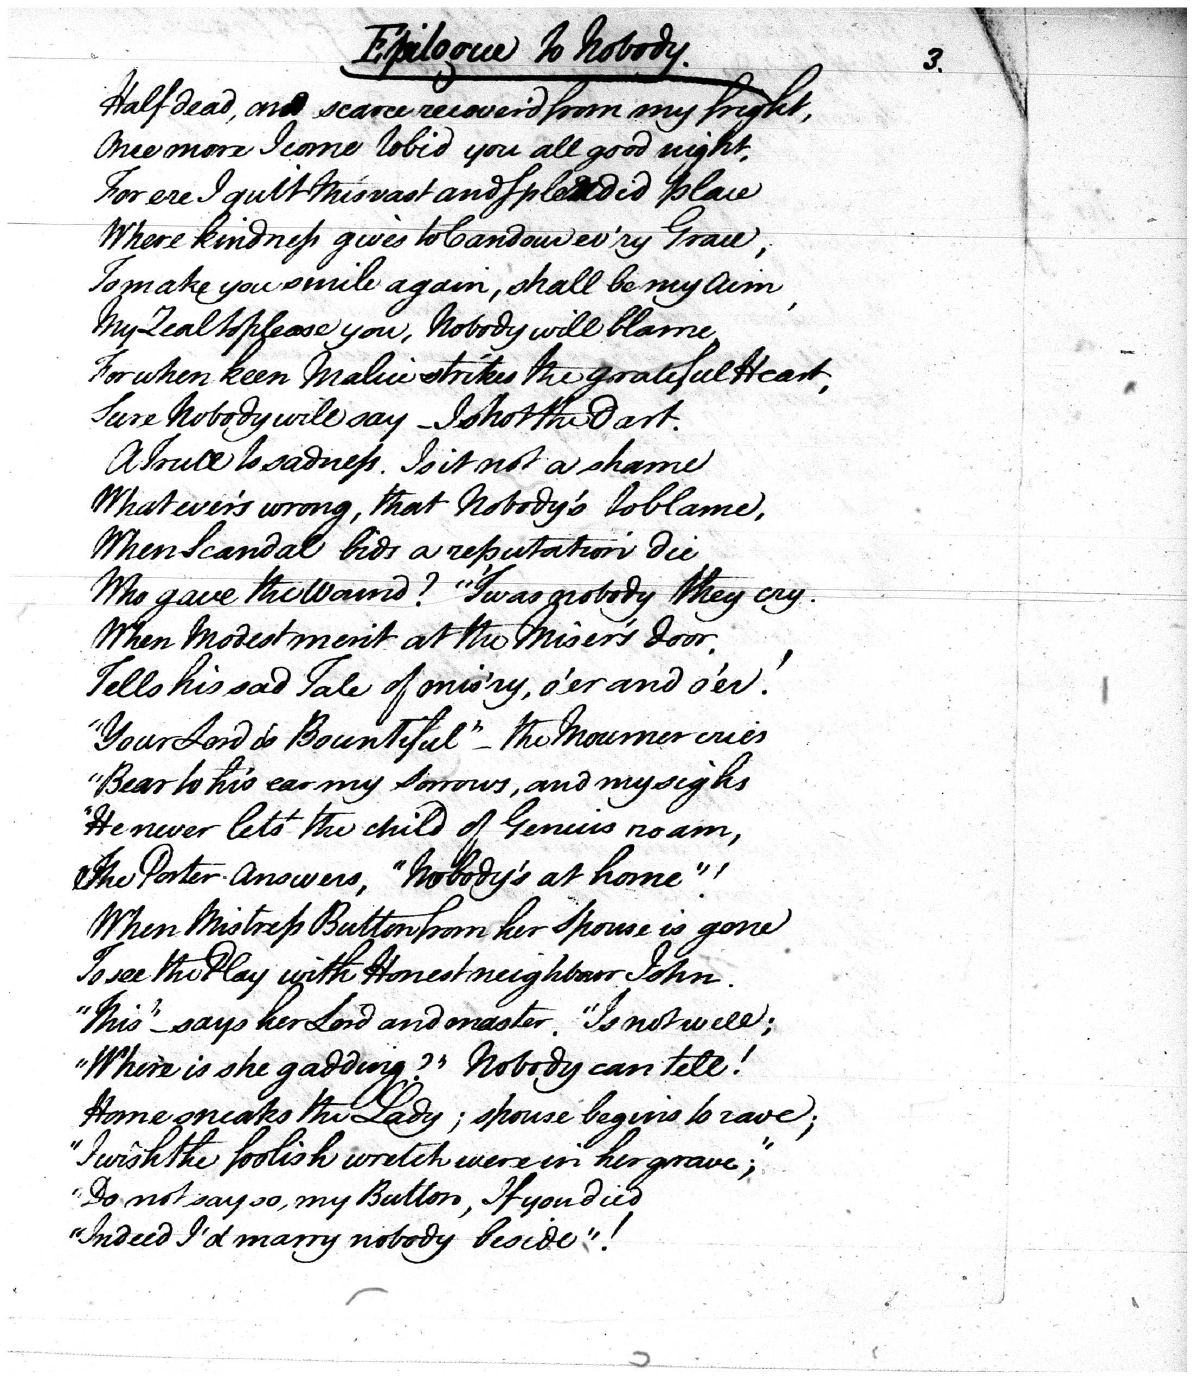 Epilogue to Nobody.
3.
Half dead, and scarce recover'd from my fright,
Once more I come to bid you all good night.
For ere I quit this vast and splendid place
Where kindness gives to Candour ev'ry Grace,
To make you smile again, shall be my Aim,
My Zeal to please you, Nobody will blame,
For when keen Malice strikes the grateful Heart,
Sure Nobody will say – I shot the Dart.
A Truce to sadness. Is it not a shame
What ever's wrong, that Nobody's to blame,
When Scandal bids a reputation die
Who gave the Wound? "'Twas nobody they cry.
When Modest merit at the Miser's door,
Tells his sad Tale of mis'ry, o'er and o'er!
"Your Lord is Bountiful" – the Mourner cries
"Bear to his ear my sorrows, and my sighs
"He never lets the child of Genius roam,
The Porter Answers, "Nobody's at home"!
When Mistress Button from her Spouse is gone
To see the Play with Honest neighbour John.
"This" – says her Lord and master. "Is not well;
"Where is she gadding?" Nobody can tell!
Home sneaks the Lady; spouse begins to rave;
"I wish the foolish wretch were in her grave;"
"Do not say so, my Button, If you died
"Indeed I'd marry nobody beside"!